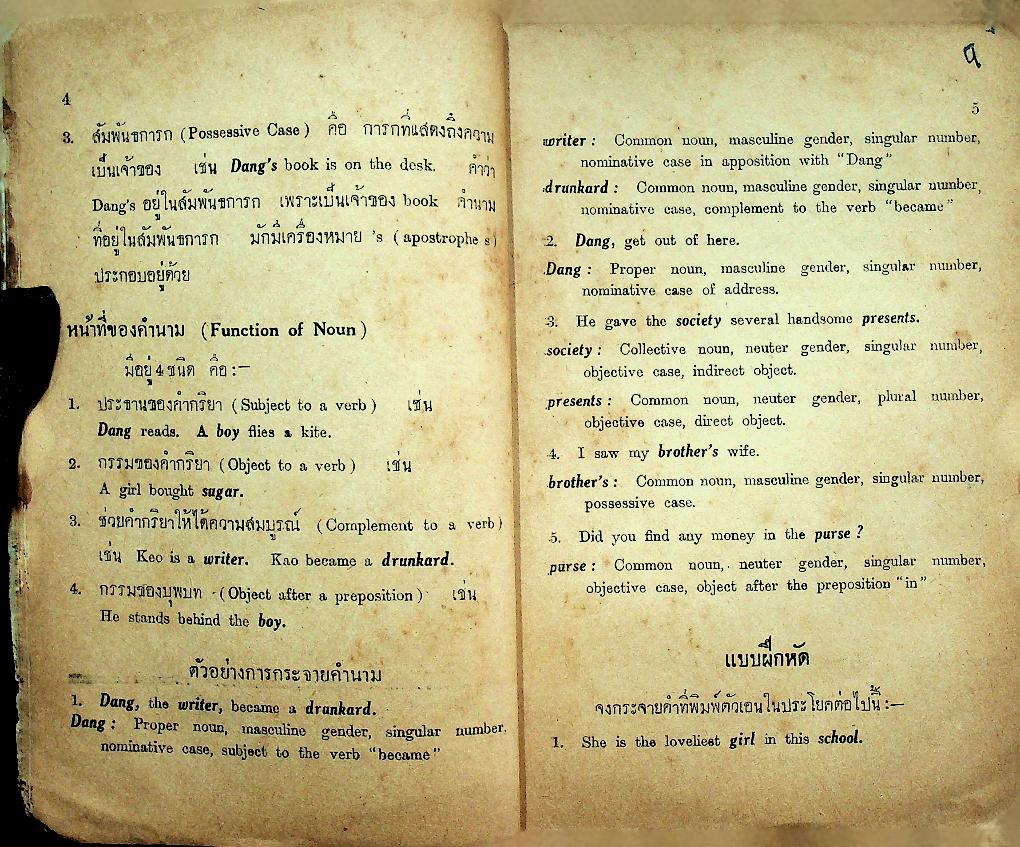 4
3. สัมพันธการก (Possessive Case) คือ การกที่แสดงถึงความ
เป็นเจ้าของ เช่น Dang's book is on the desk. คำว่า
Dang's อยู่ในสัมพันธการก เพราะเป็นเจ้าของ book คำนาม
ที่อยู่ในสัมพันธการก มักมีเครื่องหมาย 's (apostrophe s)
ประกอบอยู่ด้วย
หน้าที่ของคำนาม (Function of Noun)
มีอยู่ 4 ชนิด คือ :—
1. ประธานของคำกริยา (Subject to a verb) เช่น
Dang reads. A boy flies a kite.
2. กรรมของคำกริยา (Object to a verb) เช่น
A girl bought sugar.
3. ช่วยคำกริยาให้ได้ความสมบูรณ์ (Complement to a verb)
เช่น Keo is a writer. Kao became a drunkard.
4. กรรมของบุพบท (Object after a preposition) เช่น
He stands behind the boy.
ตัวอย่างการกระจายคำนาม
1. Dang, the writer, became a drunkard.
Dang : Proper noun, masculine gender, singular number,
nominative case, subject to the verb "became"
5
writer : Common noun, masculine gender, singular number,
nominative case in apposition with "Dang"
drunkard : Common noun, masculine gender, singular number,
nominative case, complement to the verb "became"
2. Dang, get out of here.
Dang : Proper noun, masculine gender, singular number,
nominative case of address.
3. He gave the society several handsome presents.
society : Collective noun, neuter gender, singular number,
objective case, indirect object.
presents : Common noun, neuter gender, plural number,
objective case, direct object.
4. I saw my brother's wife.
brother's : Common noun, masculine gender, singular number,
possessive case.
5. Did you find any money in the purse ?
purse : Common noun, neuter gender, singular number,
objective case, object after the preposition "in"
แบบฝึกหัด
จงกระจายคำที่พิมพ์ตัวเอนในประโยคต่อไปนี้ :—
1. She is the loveliest girl in this school.